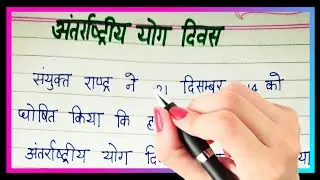 अंतर्राष्ट्रीय योग दिवस
संयुक्त राष्ट्र ने 21 दिसम्बर 14 को
घोषित किया कि
अंतर्राष्ट्रीय योग